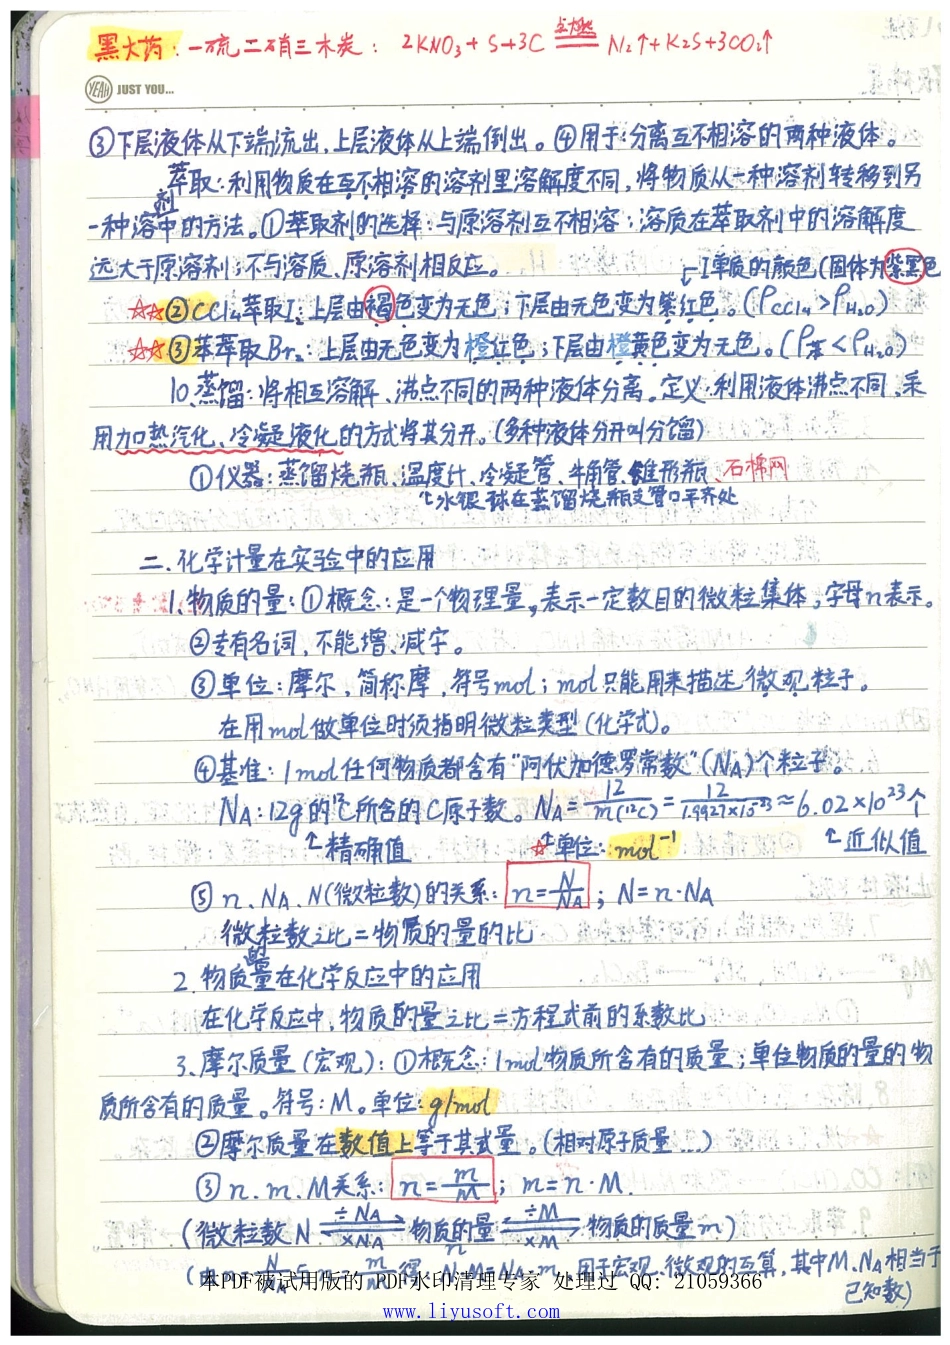 黑火药：一硫二硝三木炭：2KNO₃+S+3C 点燃 N₂↑+K₂S+3CO₂↑
YEAH JUST YOU...
③下层液体从下端流出，上层液体从上端倒出。④用于：分离互不相溶的两种液体。
萃取：利用物质在互不相溶的溶剂里溶解度不同，将物质从一种溶剂转移到另
一种溶剂中的方法。①萃取剂的选择：与原溶剂互不相溶；溶质在萃取剂中的溶解度
远大于原溶剂；不与溶质、原溶剂相反应。 I单质的颜色(固体为紫黑色
☆☆②CCl₄萃取I₂：上层由褐色变为无色；下层由无色变为紫红色。(ρCCl₄>ρH₂O)
☆☆③苯萃取Br₂：上层由无色变为橙红色；下层由橙黄色变为无色。(ρ苯<ρH₂O)
10、蒸馏：将相互溶解、沸点不同的两种液体分离。定义：利用液体沸点不同，采
用加热汽化、冷凝液化的方式将其分开。(多种液体分开叫分馏)
①仪器：蒸馏烧瓶、温度计、冷凝管、牛角管、锥形瓶、石棉网
↑水银球在蒸馏烧瓶支管口平齐处
二、化学计量在实验中的应用
1、物质的量：①概念：是一个物理量，表示一定数目的微粒集体，字母n表示。
②专有名词，不能增、减字。
③单位：摩尔，简称摩，符号mol；mol只能用来描述微观粒子。
在用mol做单位时须指明微粒类型(化学式)。
④基准：1mol任何物质都含有“阿伏加德罗常数”(NA)个粒子。
NA：12g的¹²C所含的C原子数。NA=12/m(¹²C)=12/1.9927×10⁻²³≈6.02×10²³个
↑精确值 ☆↑单位：mol⁻¹ ↑近似值
⑤n、NA、N(微粒数)的关系：n=N/NA；N=n·NA
微粒数之比=物质的量的比
2、物质的量在化学反应中的应用
在化学反应中，物质的量之比=方程式前的系数比
3、摩尔质量(宏观)：①概念：1mol物质所含有的质量；单位物质的量的物
质所含有的质量。符号：M。单位：g/mol
②摩尔质量在数值上等于其式量。(相对原子质量...)
③n、m、M关系：n=m/M；m=n·M.
(微粒数N ÷NA ×NA 物质的量n ÷M ×M 物质的质量m)
用于宏观、微观的互算，其中M、NA相当于
已知数)
本PDF被试用版的 PDF水印清理专家 处理过 QQ：21059366
www.liyusoft.com/